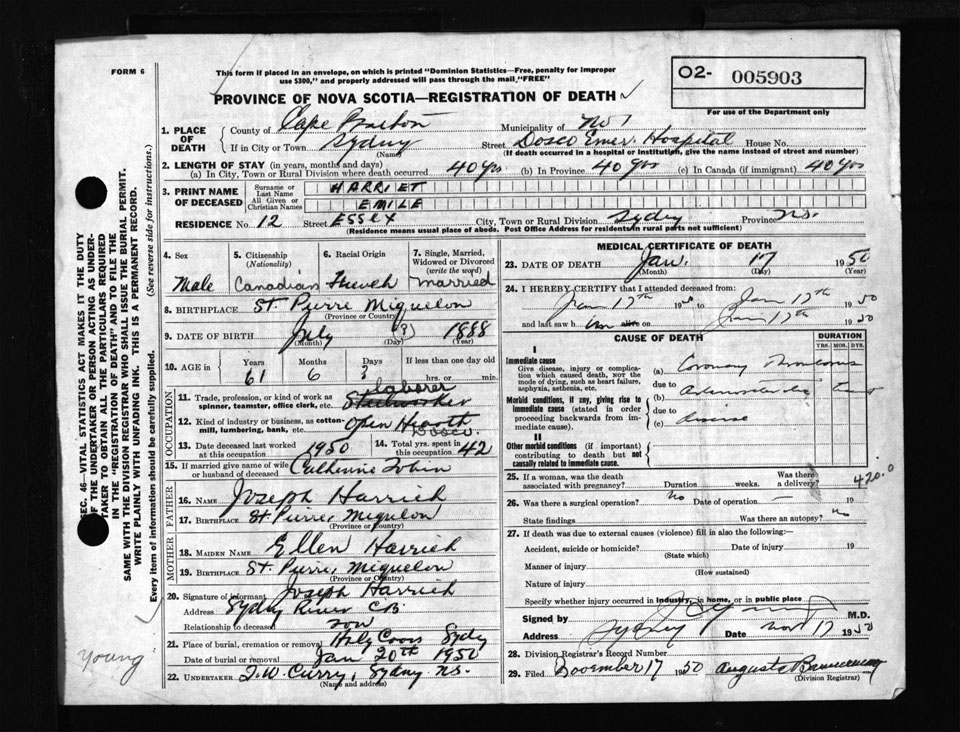 FORM 6
This form if placed in an envelope, on which is printed "Dominion Statistics—Free, penalty for improper
use $300," and properly addressed will pass through the mail, "FREE"
O2- 005903
PROVINCE OF NOVA SCOTIA—REGISTRATION OF DEATH
For use of the Department only
1. PLACE OF DEATH
County of Cape Breton Municipality of
If in City or Town Sydney Street Dosco Emer. Hospital House No.
(Name) (If death occurred in a hospital or institution, give the name instead of street and number)
2. LENGTH OF STAY (in years, months and days)
(a) In City, Town or Rural Division where death occurred 40 yrs (b) In Province 40 yrs (c) In Canada (if immigrant) 40 yrs
3. PRINT NAME OF DECEASED
Surname or Last Name HARRIET
All Given or Christian Names EMILE
RESIDENCE No. 12 Street ESSEX City, Town or Rural Division Sydney Province N.S.
(Residence means usual place of abode. Post Office Address for residents in rural parts not sufficient)
4. Sex Male
5. Citizenship (Nationality) Canadian
6. Racial Origin French
7. Single, Married, Widowed or Divorced (write the word) Married
8. BIRTHPLACE St. Pierre Miquelon
(Province or Country)
9. DATE OF BIRTH July (?) 1888
(Month) (Day) (Year)
10. AGE in Years 61 Months 6 Days ? If less than one day old hrs. or min.
OCCUPATION
11. Trade, profession, or kind of work as spinner, teamster, office clerk, etc. Steelworker laborer
12. Kind of industry or business, as cotton-mill, lumbering, bank, etc. Open Hearth Dosco.
13. Date deceased last worked at this occupation 1950
14. Total yrs. spent in this occupation 42
15. If married give name of wife or husband of deceased Catherine Tobin
FATHER
16. NAME Joseph Harrich
17. BIRTHPLACE St. Pierre, Miquelon
(Province or Country)
MOTHER
18. MAIDEN NAME Ellen Harrich
19. BIRTHPLACE St. Pierre, Miquelon
(Province or Country)
20. Signature of informant Joseph Harrich
Address Sydney River C.B.
Relationship to deceased son
21. Place of burial, cremation or removal Holy Cross Sydney
Date of burial or removal Jan 20th 1950
22. UNDERTAKER T.W. Curry, Sydney N.S.
(Name and address)
MEDICAL CERTIFICATE OF DEATH
23. DATE OF DEATH Jan. 17 1950
(Month) (Day) (Year)
24. I HEREBY CERTIFY that I attended deceased from:
Jan 17th 1950 to Jan 17th 1950
and last saw him alive on Jan 17th 1950
CAUSE OF DEATH
DURATION
YRS. MOS. DYS.
I
Immediate cause
Give disease, injury or complication which caused death, not the mode of dying, such as heart failure, asphyxia, asthenia, etc.
(a) Coronary Thrombosis
due to
Morbid conditions, if any, giving rise to immediate cause (stated in order proceeding backwards from immediate cause).
(b)
due to
(c)
II
Other morbid conditions (if important) contributing to death but not causally related to immediate cause.
25. If a woman, was the death associated with pregnancy? Duration weeks. Was there a delivery?
420.0
26. Was there a surgical operation? No Date of operation — 19
State findings Was there an autopsy? no
27. If death was due to external causes (violence) fill in also the following:
Accident, suicide or homicide? Date of injury 19
(State which)
Manner of injury
(How sustained)
Nature of injury
Specify whether injury occurred in industry, in home, or in public place
Signed by M.D.
Address Sydney Date Nov 17 1950
28. Division Registrar's Record Number
29. Filed November 17 1950
(Division Registrar)
SEC. 46—VITAL STATISTICS ACT MAKES IT THE DUTY
OF THE UNDERTAKER OR PERSON ACTING AS UNDER-
TAKER TO OBTAIN ALL THE PARTICULARS REQUIRED
IN THE "REGISTRATION OF DEATH" AND TO FILE THE
SAME WITH THE DIVISION REGISTRAR WHO SHALL ISSUE THE BURIAL PERMIT.
WRITE PLAINLY WITH UNFADING INK. THIS IS A PERMANENT RECORD.
Every item of information should be carefully supplied. (See reverse side for instructions.)
Young